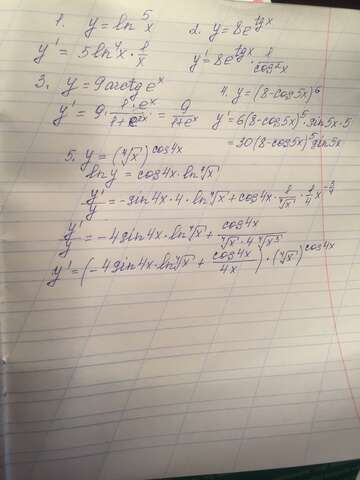 1. y = ln⁵x
2. y = 8e^(tgx)
y' = 5ln⁴x · 1/x
y' = 8e^(tgx) · 1/cos²x
3. y = 9arctg e^x
4. y = (8-cos5x)⁶
y' = 9 · 1·e^x/(1+e^(2x)) = 9/(1+e^x)
y' = 6(8-cos5x)⁵ · sin5x · 5
= 30(8-cos5x)⁵ sin5x
5. y = (⁴√x)^(cos4x)
ln y = cos4x · ln ⁴√x
y'/y = -sin4x · 4 · ln ⁴√x + cos4x · 1/⁴√x · 1/4 x^(-3/4)
y'/y = -4sin4x · ln ⁴√x + cos4x/(⁴√x · 4 ⁴√x³)
y' = (-4sin4x · ln ⁴√x + cos4x/4x) · (⁴√x)^(cos4x)